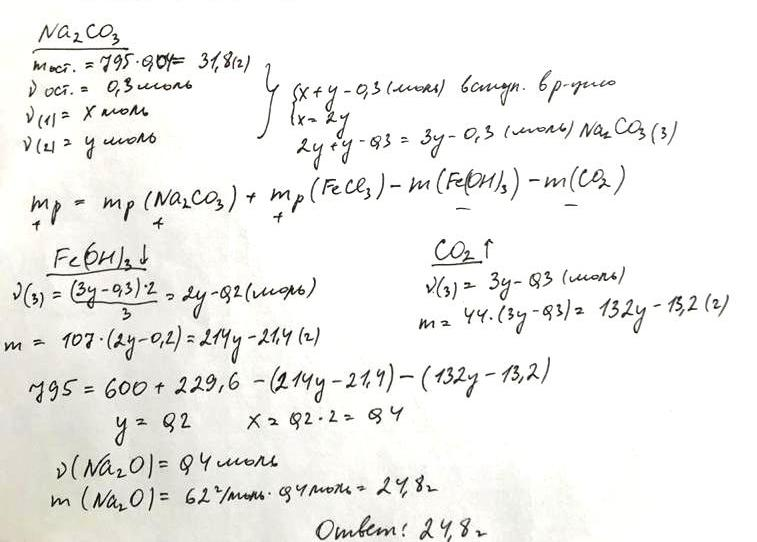 Na₂CO₃
mост. = 795·0,04 = 31,8(г)
ν ост. = 0,3 моль
ν(1) = x моль
ν(2) = y моль
{x+y-0,3 (моль) вступ. в р-цию
{x = 2y
2y+y-0,3 = 3y-0,3 (моль) Na₂CO₃(3)
mр = mр(Na₂CO₃) + mр(FeCl₃) - m(Fe(OH)₃) - m(CO₂)
+ + + - -
Fe(OH)₃↓
ν(3) = (3y-0,3)·2/3 = 2y-0,2(моль)
m = 107·(2y-0,2) = 214y-21,4(г)
CO₂↑
ν(3) = 3y-0,3 (моль)
m = 44·(3y-0,3) = 132y-13,2(г)
795 = 600 + 229,6 - (214y-21,4) - (132y-13,2)
y = 0,2 x = 0,2·2 = 0,4
ν(Na₂O) = 0,4 моль
m (Na₂O) = 62 г/моль · 0,4 моль = 24,8г
Ответ: 24,8г